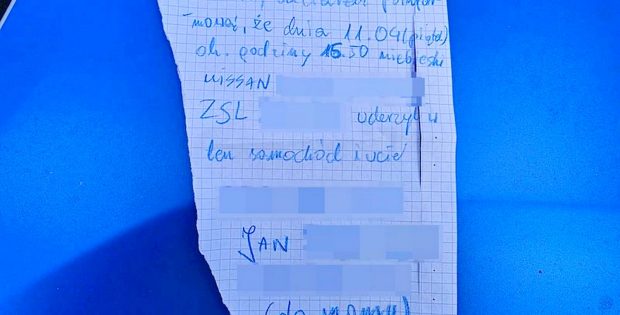 -mować, że dnia 11.09 (piątek)
ok. godziny 16.30 niebieski
NISSAN
ZSL uderzył w
ten samochód i uciekł
JAN
(do mamy)